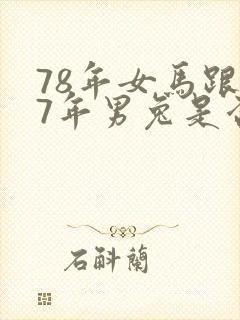 78年女馬跟
7年男兔是否
石斛蘭